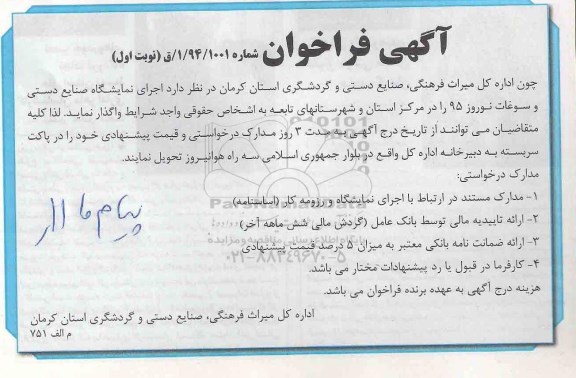 آگهی فراخوان شماره ۱/۹۴/۱۰۰۱/ق (نوبت اول)
چون اداره کل میراث فرهنگی، صنایع دستی و گردشگری استان کرمان در نظر دارد اجرای نمایشگاه صنایع دستی
و سوغات نوروز ۹۵ را در مرکز استان و شهرستانهای تابعه به اشخاص حقوقی واجد شرایط واگذار نماید. لذا کلیه
متقاضیان می توانند از تاریخ درج آگهی به مدت ۳ روز مدارک درخواستی و قیمت پیشنهادی خود را در پاکت
سربسته به دبیرخانه اداره کل واقع در بلوار جمهوری اسلامی سه راه هوانیروز تحویل نمایند.
مدارک درخواستی:
۱- مدارک مستند در ارتباط با اجرای نمایشگاه و رزومه کار (اساسنامه)
۲- ارائه تاییدیه مالی توسط بانک عامل (گردش مالی شش ماهه آخر)
۳- ارائه ضمانت نامه بانکی معتبر به میزان ۵ درصد قیمت پیشنهادی
۴- کارفرما در قبول یا رد پیشنهادات مختار می باشد.
هزینه درج آگهی به عهده برنده فراخوان می باشد.
اداره کل میراث فرهنگی، صنایع دستی و گردشگری استان کرمان
م الف ۷۵۱
پیام ما
۰۲۱-۸۸۳۴۹۶۷۰-۵